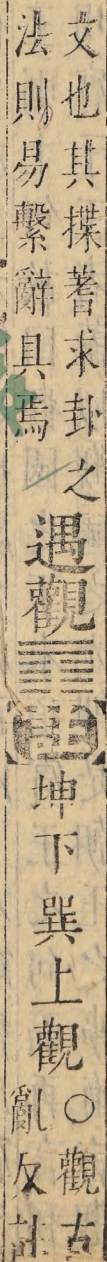 文也其揲蓍求卦之
法則易繫辭具焉
遇觀䷓
註
坤下巽上觀
○觀古
亂反註